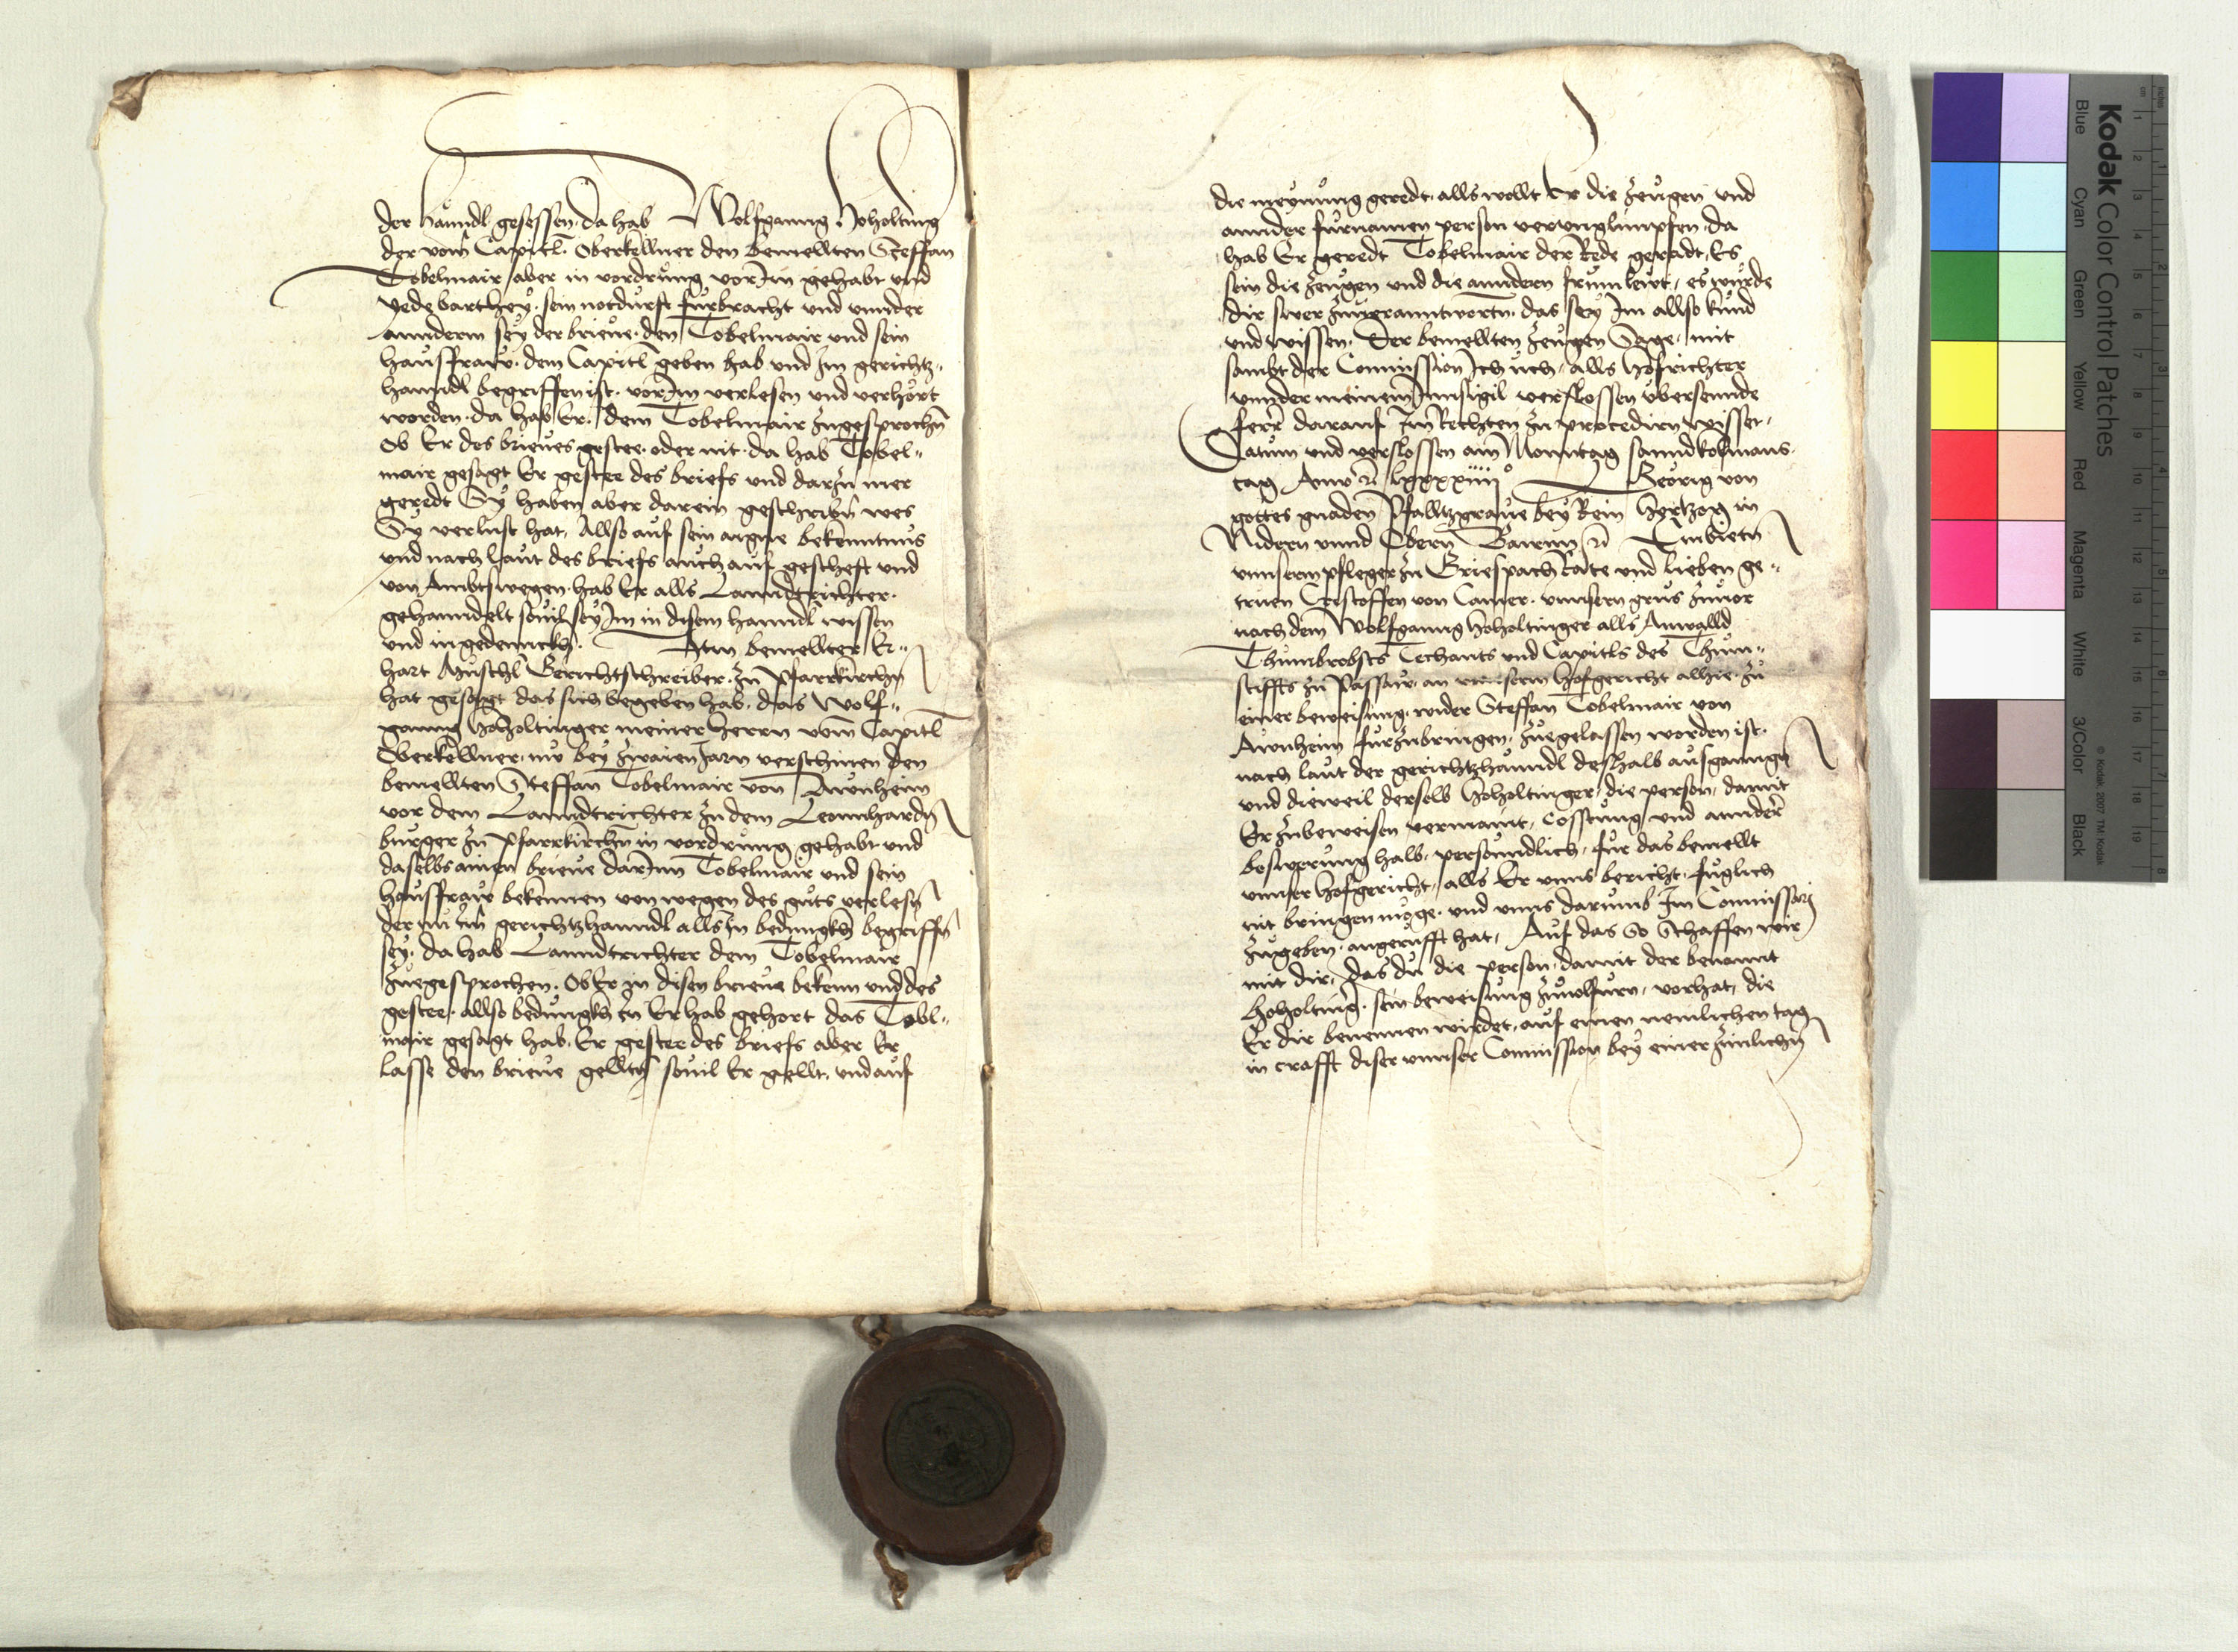 der hanndl gesessen da hab Wolfganng Hoholting
der vom Capitl Oberkellner den bemellten Steffan
Tobelmair aber in vordrung vor Im gehabt und
yede barthey sein notdurft furbracht und vnnder
annderm sey der brieue den Tobelmair und sein
hausfraw dem Capitl geben hab und Im gerichtz„
hanndl begriffen ist vor Im verlesen und verhort
worden da hab Er dem Tobelmair zugesprochn
Ob Er des brieues gestee oder nit da hab Tobel„
mair gesagt Er gestee des briefs und darzu mer
geredt Sy haben aber darein geschribn wes
Sy verlust hat, Allso auf sein aigne bekenntnus
und nach laut des briefs auch auf gescheft und
von Ambtswegen hab Er alls Lanndtrichter
gehanndelt souil sey Im in disem hanndl wissen
und ingedennckh. Item bemellter Er„
hart Gerichtschreiber zu Pfarrkirchn
hat gesagt das sich begeben hab, das Wolf„
ganng Hoholtinger meiner Herrn vom Capitl
Oberkellner nw bey zwaien Jarn verschinen den
bemellten Steffan Tobelmair von Awnheim
vor dem Lanndtrichter zu dem Leonnhardn
burger zu Pfarrkirchn in vordrung gehabt und
daselbs ainen brieue darInn Tobelmair und sein
hausfraw bekennen von wegen des guts verlesn
der nu im gerichtzhanndl alls In bedunngkh begriffn
sey, da hab Lanndtrichter dem Tobelmair
zuegesprochen. Ob Er in disen brieue bekenn und des
gestee allso bedungkh in Er hab gehort das Tobl„
mair gesagt hab, Er gestee des briefs aber Er
lasse den brieue gelltn souil Er gellt, und auf
die meynung geredt, alls wollt Er die zeugen und
annder furnamen person verunglimpfen, da
hab Er geredt Tobelmair der Rede geradt Es
sein die zeugen und die anndern frum lewt, es wurde
dir swer zuuerantworttn, das sey Im allso kund
und wissen. Der bemellten zeugen Sage, mit
sambt der Commission Ich uch, alls Hofrichter
vnnder meinem Innsigil verslossen ubersennde
ferrer darauf Im Rechten zu procedirn wisset,
Datum und verslossen am Monntag sannd kolmans
tag Anno rc lxxxxiiii° Georig von
gottes gnaden Pfalltzgraue bey Rein Hertzog in
Nidern vnnd Obern Bairnn rc Embietn
vnnserm pfleger zu Griespach Rate und lieben ge„
truen Cristoffen von Camer vnnsern grus zuuor
nach dem Wolfganng Hoholtinger alls Anwalld
Thumbrobsts Techants und Capitls des Thum„
stiffts zu Passaw, an vnnserm Hofgericht alhie zu
einer beweisung wider Steffan Tobelmair von
Awnheim furzubringen, zuegelassen worden ist,
nach laut der gerichtzhanndl deshalb ausganngn
und dieweil derselb Hoholtinger, die person, damit
Er zubeweisen vermaint, cosstung und annderer
beswerung halb, personndlich, fur das bemellt
vnnser Hofgericht, alls Er vnns bericht, fuglich
nit bringen moge, und vnns darumb Im Commissari
zugeben, angerufft hat, Auf das so Schaffen wir
mit dir, das du die person, damit der benannt
Hoholting, sein beweisung zuuolfurn, vorhat, die
Er dir benennen wirdet, auf einen nemlichen tag
in crafft diser vnnser Commission bey einer zimlichn
Kodak Color Control Patches
Blue
Cyan
Green
Yellow
Red
Magenta
White
3/Color
Black
© Kodak, 2007 TM: Kodak